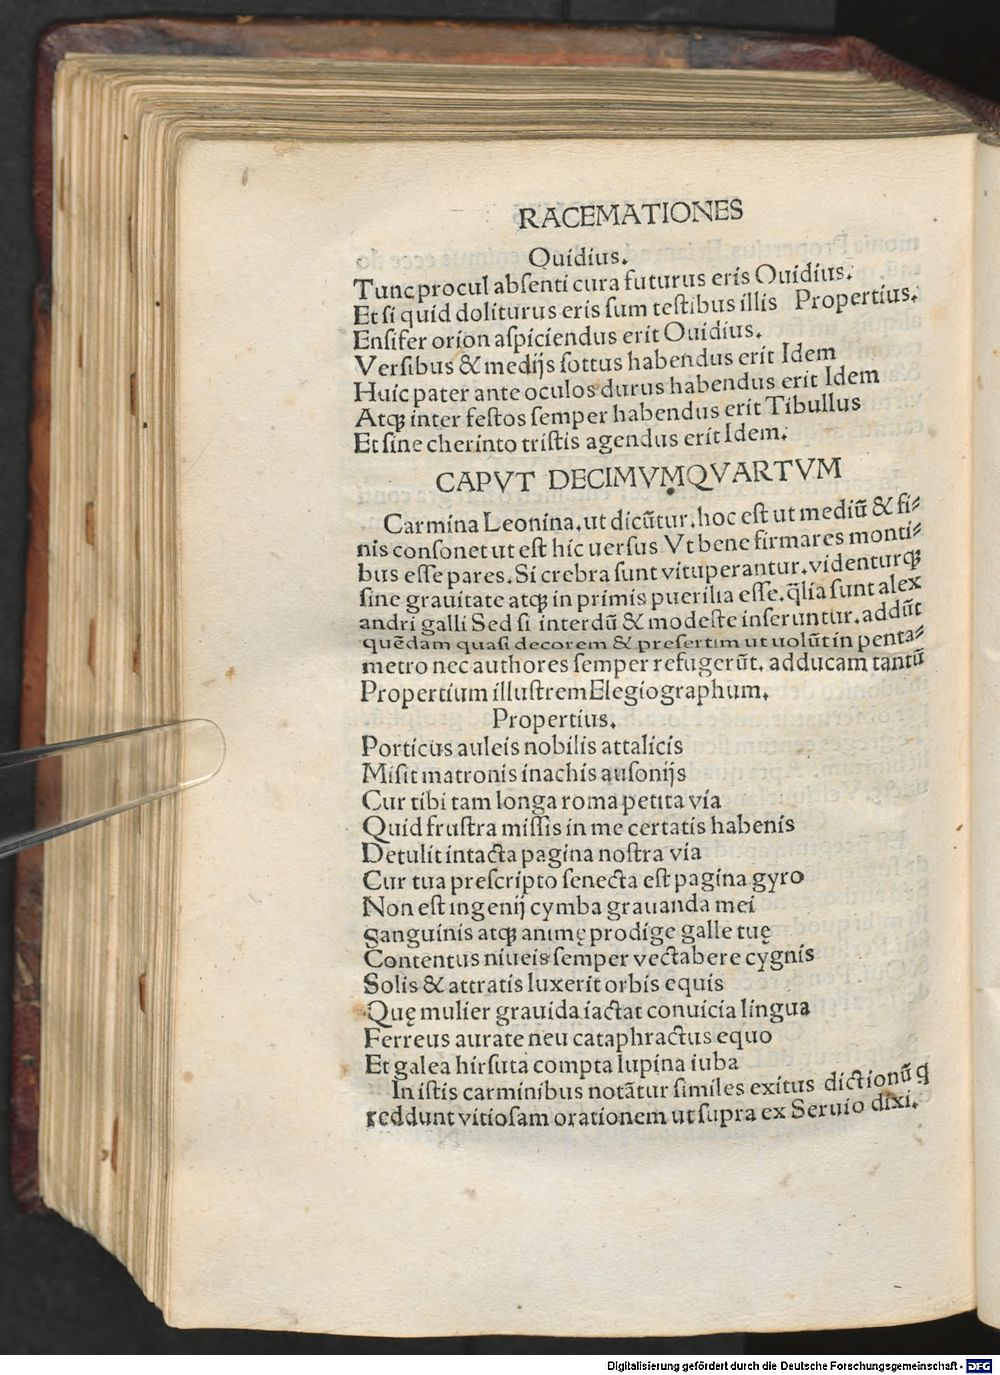 RACEMATIONES
Ouidius.
Tunc procul absenti cura futurus eris Ouidius.
Et si quid doliturus eris sum testibus illis Propertius.
Ensifer orion aspiciendus erit Ouidius.
Versibus & medijs sottus habendus erit Idem
Huic pater ante oculos durus habendus erit Idem
Atqꝫ inter festos semper habendus erit Tibullus
Et sine cherinto tristis agendus erit Idem.
CAPVT DECIMVMQVARTVM
Carmina Leonina, ut dicũtur, hoc est ut mediũ & fi⸗
nis consonet ut est hic uersus Vt bene firmares monti⸗
bus esse pares. Si crebra sunt vituperantur, videnturqꝫ
sine grauitate atqꝫ in primis puerilia esse. q̃lia sunt alex
andri galli Sed si interdũ & modeste inseruntur, addũt
quẽdam quasi decorem & presertim ut uolũt in penta⸗
metro nec authores semper refugerũt, adducam tantũ
Propertium illustrem Elegiographum.
Propertius.
Porticus auleis nobilis attalicis
Misit matronis inachis ausonijs
Cur tibi tam longa roma petita via
Quid frustra missis in me certatis habenis
Detulit intacta pagina nostra via
Cur tua prescripto senecta est pagina gyro
Non est ingenij cymba grauanda mei
Sanguinis atqꝫ animę prodige galle tuę
Contentus niueis semper vectabere cygnis
Solis & attratis luxerit orbis equis
Quę mulier grauida iactat conuicia lingua
Ferreus aurate neu cataphractus equo
Et galea hirsuta compta lupina iuba
In istis carminibus notãtur similes exitus dictionũ q
reddunt vitiosam orationem ut supra ex Seruio dixi.
Digitalisierung gefördert durch die Deutsche Forschungsgemeinschaft - DFG